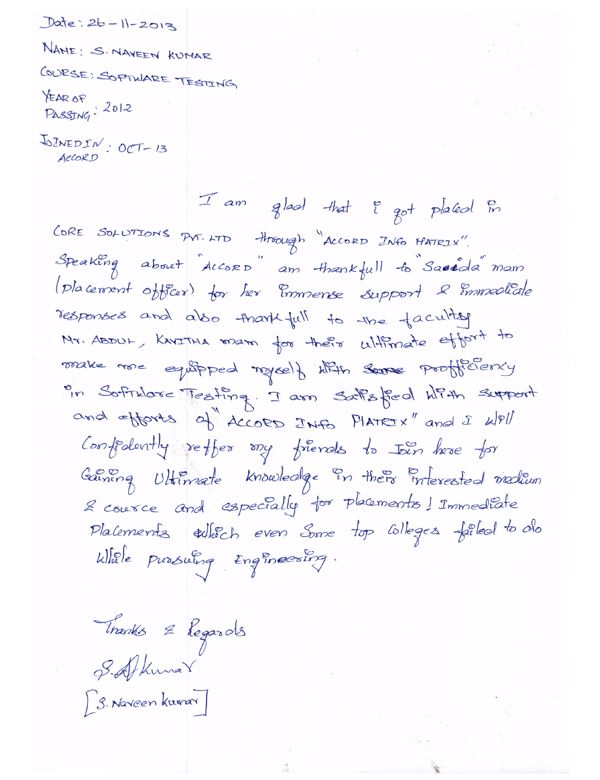 Date: 26-11-2013
NAME: S. NAVEEN KUMAR
COURSE: SOFTWARE TESTING
YEAR OF
PASSING: 2012
JOINED IN: OCT-13
ACCORD
I am glad that i got placed in
CORE SOLUTIONS PVT. LTD through "ACCORD INFO MATRIX".
Speaking about "ACCORD" am thankfull to "Sarida" mam
(placement officer) for her immense support & immediate
responses and also thankfull to the faculty
Mr. ABDUL, KAVITHA mam for their ultimate effort to
make me equipped myself with some profficiency
in Software Testing. I am Satisfied with support
and efforts of "ACCORD INFO MATRIX" and I will
Confidently reffer my friends to Join here for
Gaining Ultimate knowledge in their interested medium
& cource and especially for placements! Immediate
Placements which even Some top Colleges failed to do
While pursuing Engineering.
Thanks & Regards
S. Kumar
[S. Naveen Kumar]